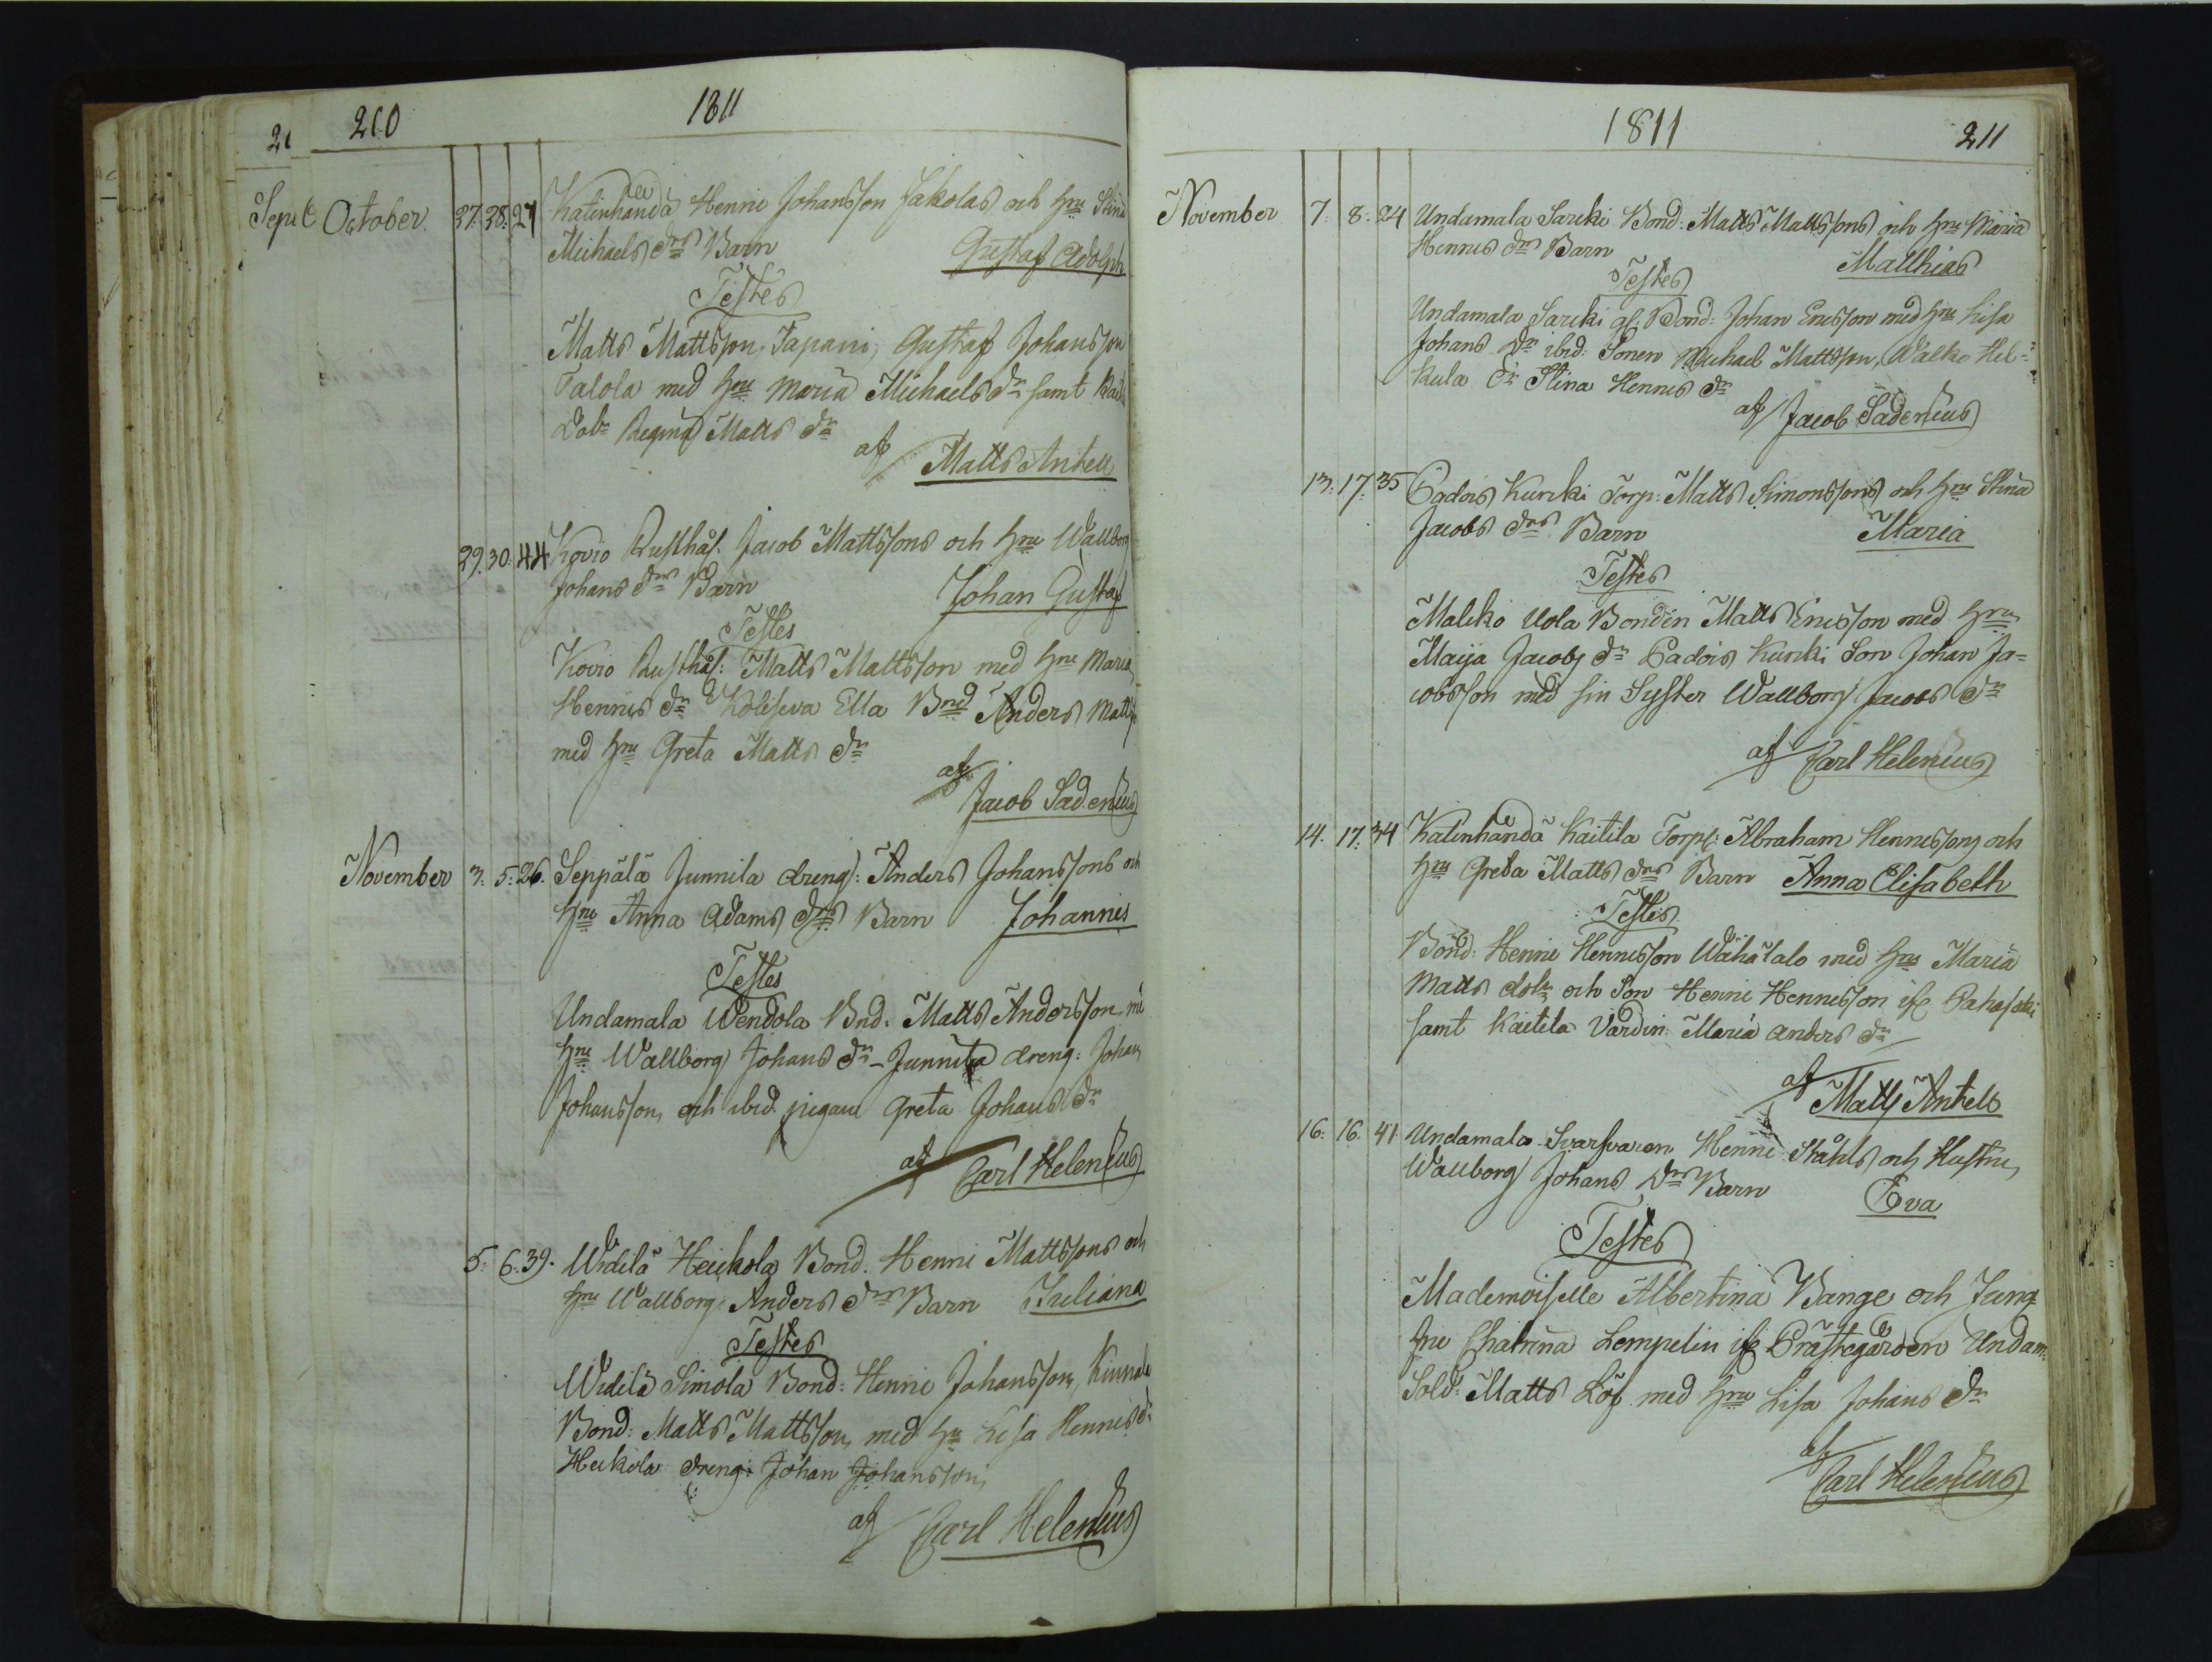 210 1811
Sept October 27. 28. 27 Katinhända Henric Johansson Jakolas och hru Stina
Michaels drs Barn Gustaf Adolph
Testes
Matts Mattsson Tapani, Gustaf Johansson
Talola med hru Maria Michaels dr samt
Regina Matts dr
af Matts Antell
29. 30. 44 Kovio Rusthål. Jacob Mattssons och hru Wallborg
Johans drs Barn Johan Gustaf
Testes
Kovio Rusthål: Matts Mattsson med hru Maria
Hennes dr Koliseva Ella Bnd Anders Matts
med hru Greta Matts dr
af
Jacob Sadenius
November 3. 5. 26. Seppälä Junnila dreng: Anders Johanssons och
hru Anna Adams drs Barn Johannes
Testes
Undamala Wendola Bnd. Matts Andersson
hru Wallborg Johans dr - Junnila dreng: Johan
Johansson, och ibid. pigan Greta Johans dr
af Carl Helenius
5. 6. 39. Widilä Heickola Bond. Henric Mattssons och
hru Wallborg Anders drs Barn Juliana
Testes
Widilä Simola Bond: Henric Johansson,
Bond: Matts Mattsson, med hu Lisa Hennes dr
Heikola dreng: Johan Johansson,
af Carl Helenius
1811 211
November 7. 8. 24 Undamala Sarcki Bond: Matts Mattssons och hru Maria
Hennes drs Barn Matthias
Testes
Undamala Sarcki gl. Bond: Johan Ericsson med hru Lisa
Johans dr ibid: Sonen Michael Mattsson, Walko Hel=
kula dr Stina Hennes dr
af Jacob Sadenius
13. 17. 35 Padois Kurcki Torp: Matts Simonssons och hru Stina
Jacobs drs Barn Maria
Testes
Maleko Uola Bonden Matts Ericsson med hru
Maija Jacobs dr Padois Kurcki Son Johan Ja=
cobsson med sin Syster Wallborg Jacobs dr
af Carl Helenius
14. 17. 34 Katinhändä Kaitila Torp: Abraham Hennessons och
hru Greta Matts drs Barn Anna Elisabeth
Testes
Bond: Henric Hennesson Wähätalo med hru Maria
Matts dotr och Son Henric Hennesson
samt Kaitila Värdin: Maria Anders dr
af Matts Antell
16. 16. 41 Undamala Svarfvaren Henric Ståhls och Hustru
Wallborg Johans drs Barn Eva
Testes
Mademoiselle Albertina Bange och Jung
fru Chatrina Lempelin if Prästegården Undam:
Sold: Matts Löf med hru Lisa Johans dr
af
Carl Helenius